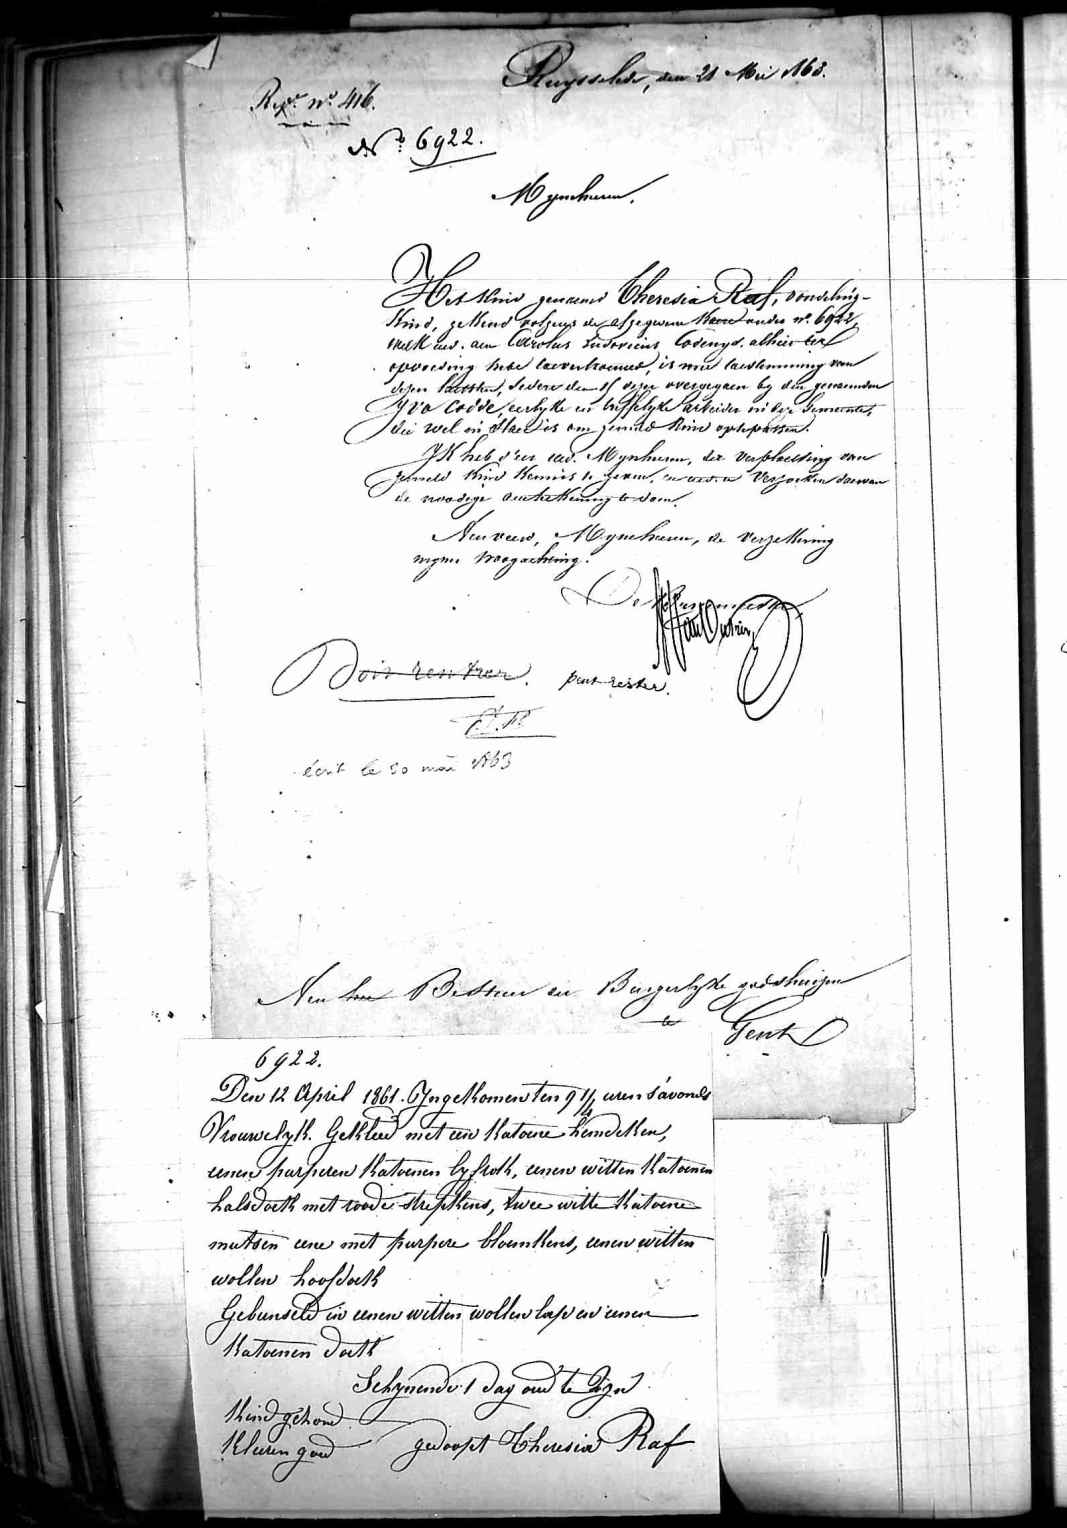 Ruysselede, den 21 Mei 1863.
Rep. n° 416.
N° 6922.
Mynheeren,
Het kind genaemd Theresia Raf, vondeling-
kind, gekend volgens de afgegeven kaert onder n° 6922,
welk aen Carolus Ludovicus Coddenys, alhier ter
opvoeding hebt toevertrouwd, is met toestemming van
dezen laetsten, sedert den dezer overgegaen by den genaemden
Yvo Codde, eerlyke en treffelyke arbeider in deze Gemeente,
die wel in staet is om gemeld kind optepassen.
Ik heb d'eer Mynheeren, de verplaetsing van
gemeld kind kennis te geven, en verzoeken daervan
de noodige aenteekening te doen.
Aenveerd, Mynheeren, de verzekering
myner hoogachting.
De Burgemeester,
Doit rentrer. peut rester.
écrit le 30 mai 1863
Aen het Bestuer der Burgerlyke godshuizen
te Gent
6922.
Den 12 April 1861. Yngekomen ten 9 1/4 uren s'avonds
Vrouwelyk. Gekleed met een katoene hemdeken,
eenen purperen katoenen lyfrok, eenen witten katoenen
halsdoek met roode strepkens, twee witte katoene
mutsen eene met purpere bloemkens, eenen witten
wollen hoofdoek
Gebunseld in eenen witten wollen lap en eenen
katoenen doek
Schynende 1 dag oud te zyn
Kind gezond
Kleeren goed gedoopt Theresia Raf